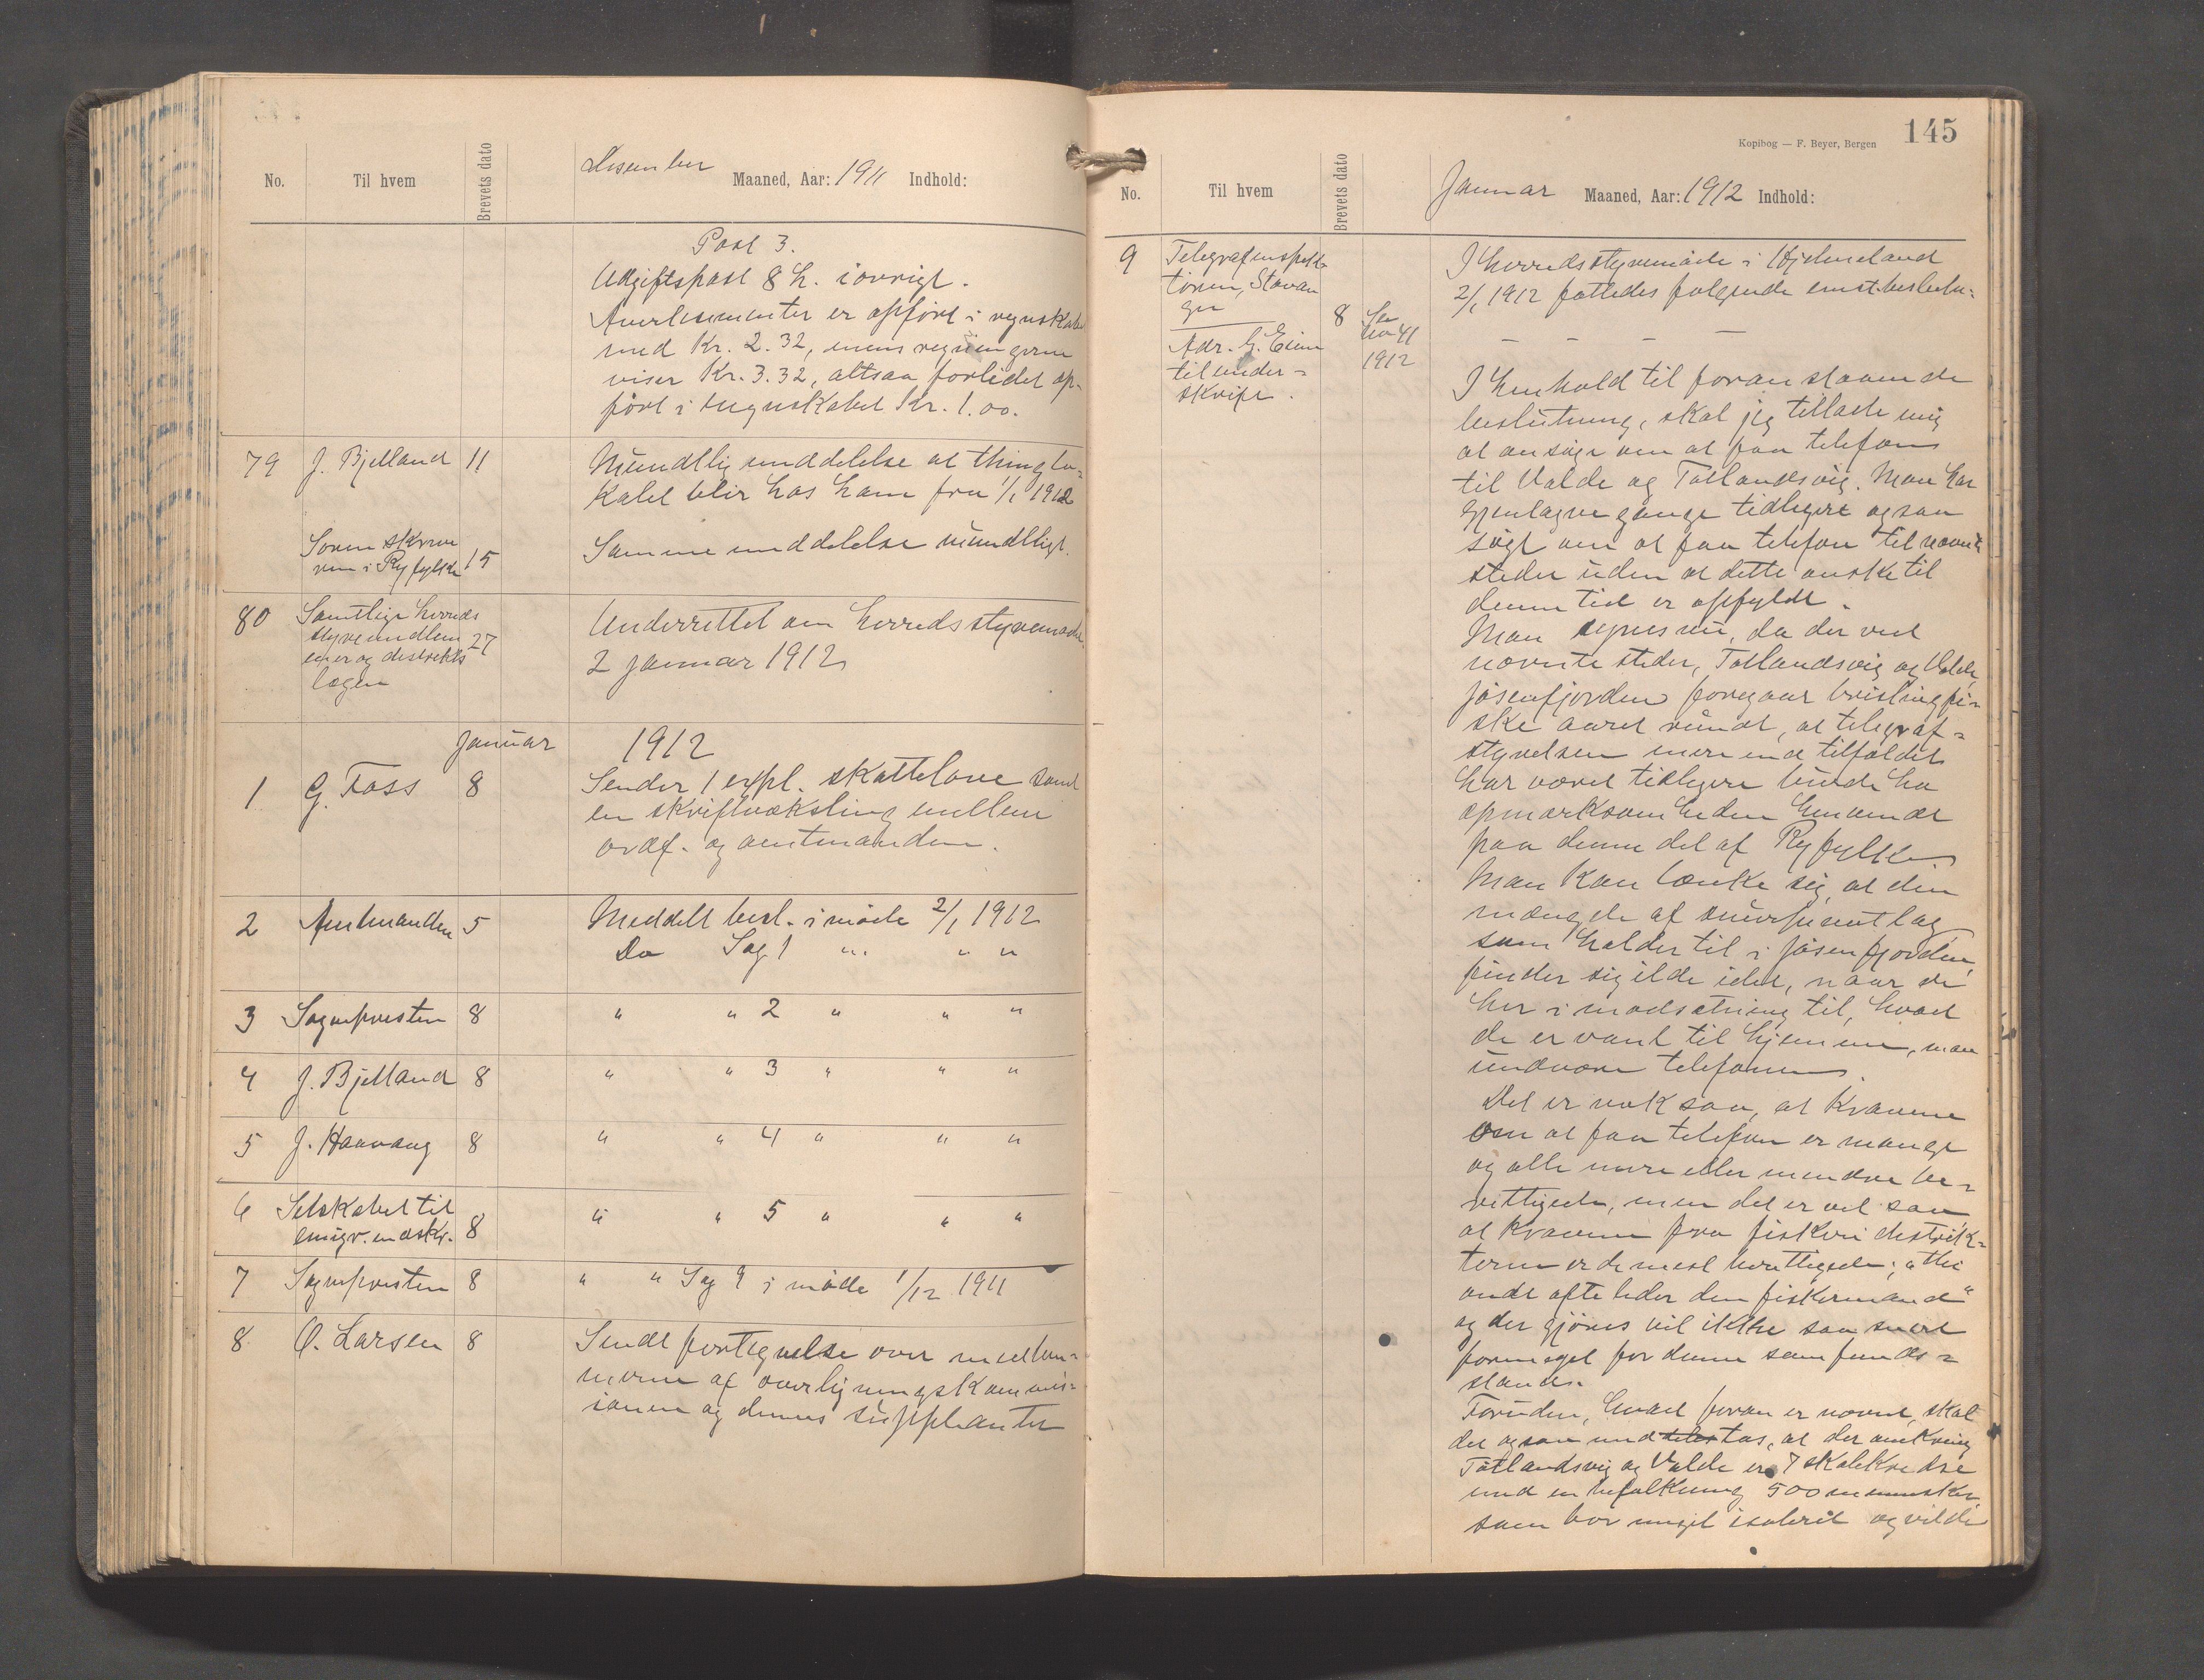 No.
Til hvem
Brevets dato
Desember Maaned, Aar: 1911 Indhold:
Post 3.
Udgiftspost 8 h. iøvrigt.
Avertisementer er opført i regnskabet
med Kr. 2.32, mens regningerne
viser Kr. 3.32, altsaa forlidet op-
ført i regnskabet Kr. 1.00.
79 J. Bjelland 11 Mundtlig meddelelse at thinglo-
kalet blir hos ham fra 1/1 1912
Sorenskrive
ren i Ryfylke 15 Samme meddelelse mundtligt.
80 Samtlige herreds
styremedlem
mer og distrikts
lægen 27
Underrettet om herredsstyremøde
2 januar 1912
Januar 1912
1 G. Foss 8 Sender 1 expl. skattelove samt
en skriftveksling mellem
ordf. og amtmanden.
2 Amtmanden 5 Meddelt besl. i møde 2/1 1912
Do Sag 1 " " "
3 Sognepresten 8 " " 2 " " "
4 J. Bjelland 8 " " 3 " " "
5 J. Haavaag 8 " " 4 " " "
6 Selskabet til
emigr. indskr. 8 " " 5 " " "
7 Sognepresten 8 " " Sag 9 i møde 1/12 1911
8 O. Larsen 8 Sendt fortegnelse over medlem-
merne af overligningskommis-
ionen og dennes supplanter
Kopibog — F. Beyer, Bergen 145
No.
Til hvem
Brevets dato
Januar Maaned, Aar: 1912 Indhold:
9 Telegrafinspek
tøren, Stavan
ger
Adr. G. Eiene
til under-
skrift.
8 Se
No 41
1912
I herredsstyremøde i Hjelmeland
2/1 1912 fattedes følgende enst. beslutn:
— — — —
I henhold til foranstaaende
beslutning, skal jeg tillade mig
at ansøge om at faa telefon
til Valde og Tøtlandsvig. Man har
gjentagne gange tidligere ogsaa
søgt om at faa telefon til nævnte
steder uden at dette ønske til
denne tid er opfyldt.
Man synes nu, da der ved
nævnte steder, Tøtlandsvig og Valde,
Jøsenfjorden foregaar brislingfi-
ske aaret rundt, at telegraf-
styrelsen mere end tilfældet
har været tidligere burde ha
opmærksomheden henvendt
paa denne del af Ryfylke.
Man kan tænke sig, at den
mængde af snurpenotlag
som holder til i Jøsenfjorden,
finder sig ilde idet, naar de
her i modsætning til, hvad
de er vant til hjemme, maa
undvære telefonen.
Det er nok saa, at kravene
om at faa telefon er mange
og alle mere eller mindre be-
rettigede, men det er vel saa
at kravene fra fiskeri distrik-
terne er de mest berettigede; "thi
ondt ofte lider den fiskermand"
og der gjøres vel ikke saa snart
formeget for denne samfunds-
stand.
Foruden, hvad foran er nævnt, skal
det ogsaa medtas, at der omkring
Tøtlandsvig og Valde er 7 skolekredse
med en befolkning 500 mennesker,
som bor meget isoleret og vilde